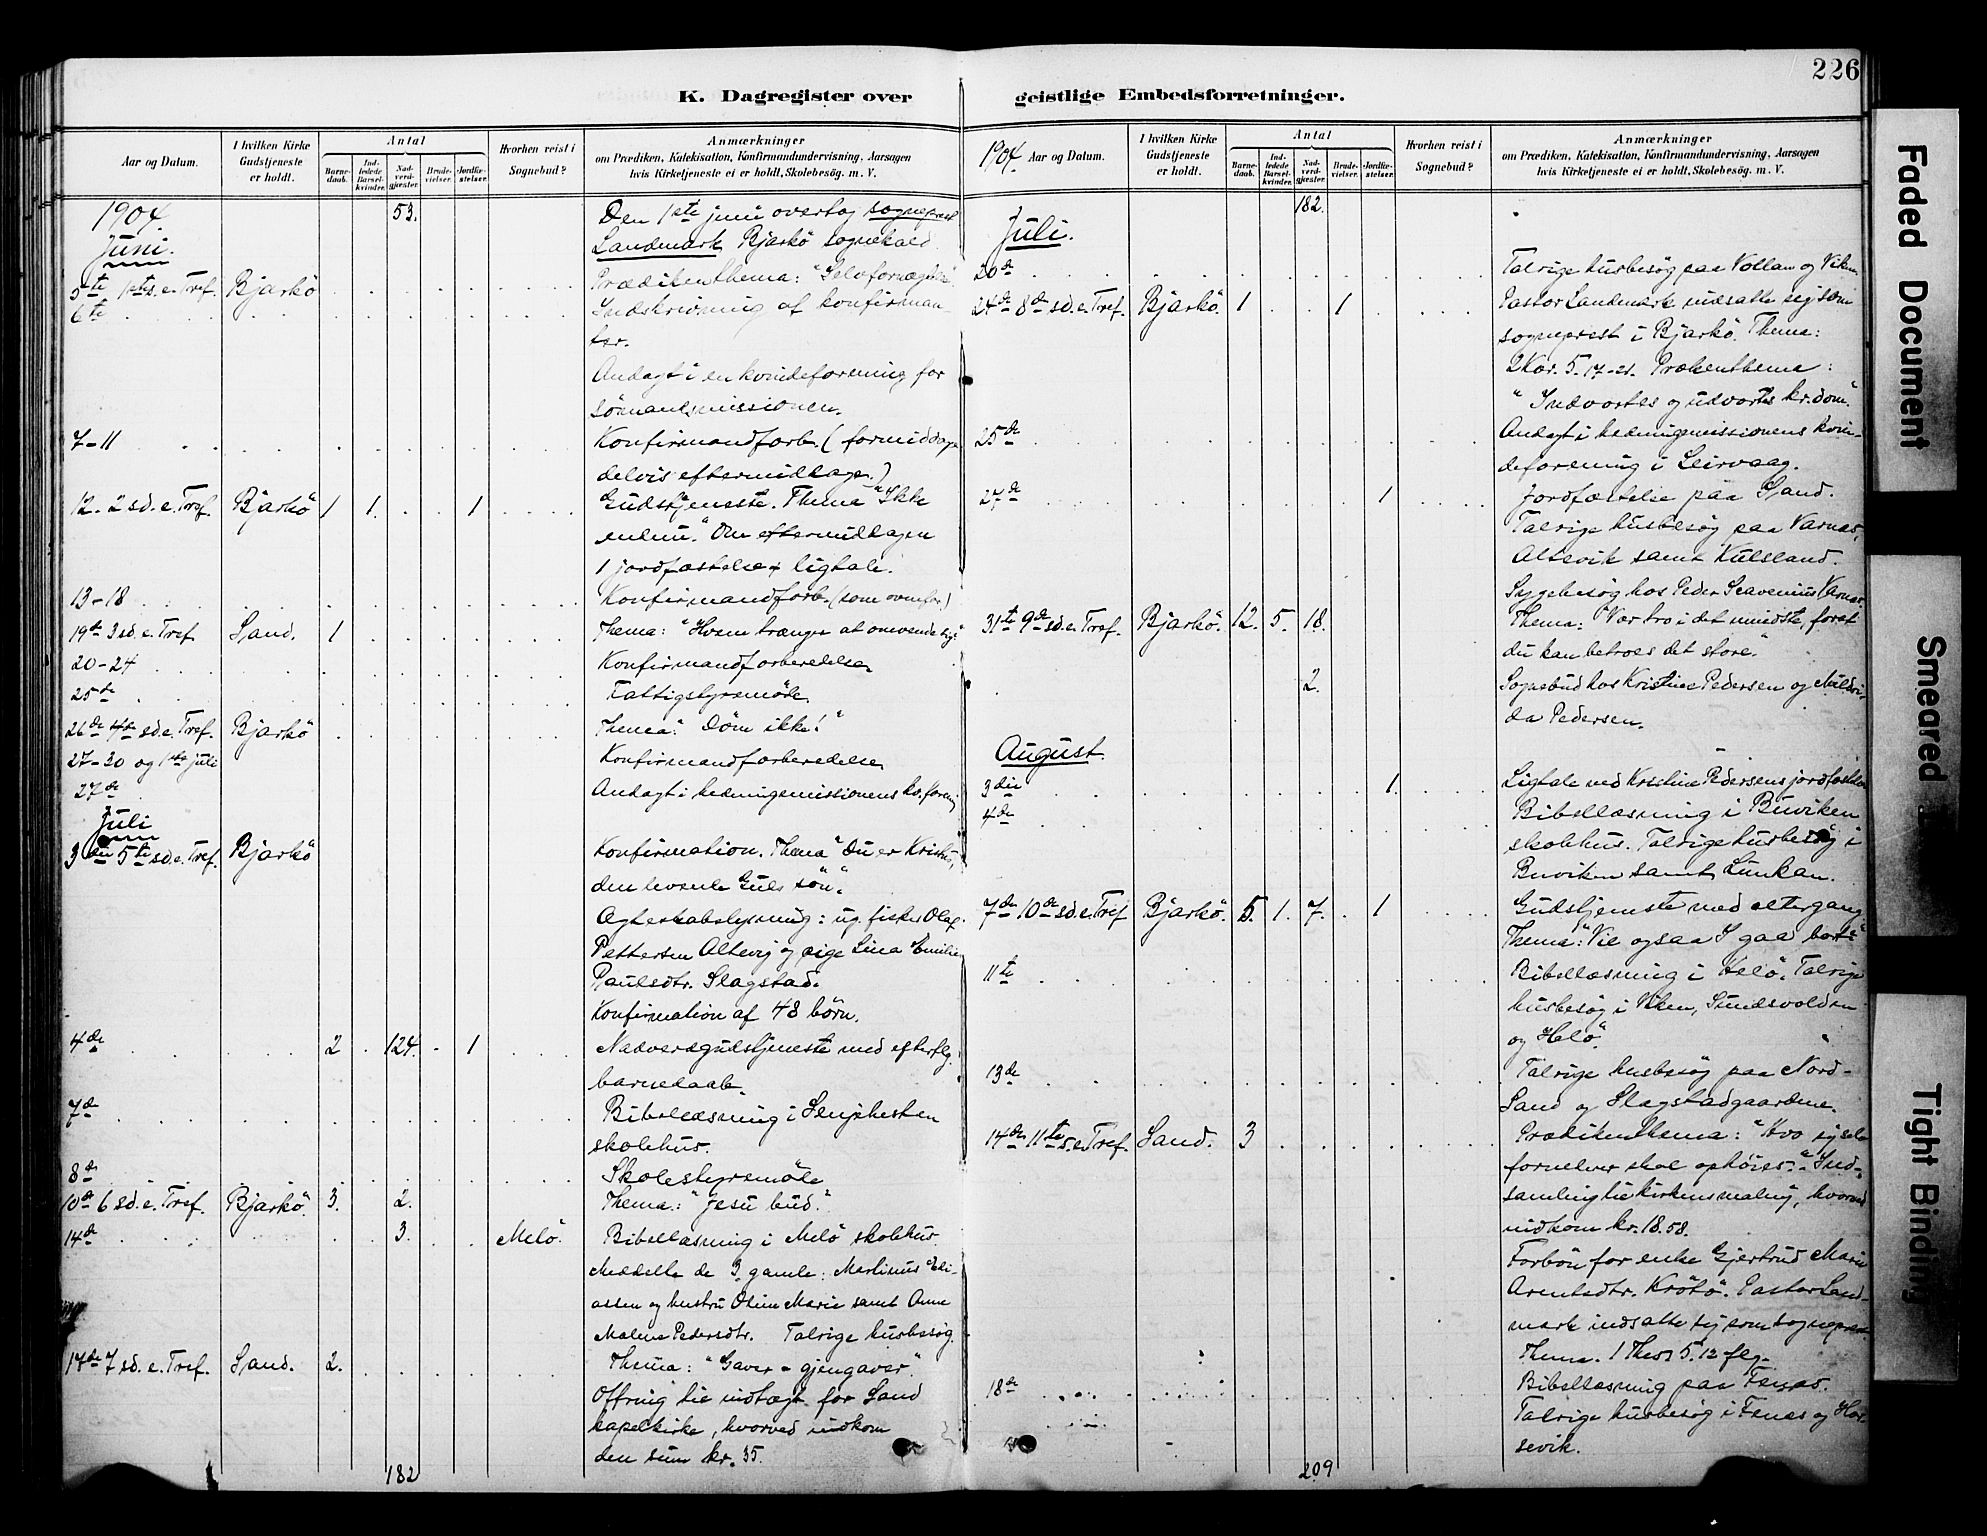 226
K. Dagregister over geistlige Embedsforretninger.
Aar og Datum.
I hvilken Kirke Gudstjeneste er holdt.
Antal
Barnedaab.
Indledede Barselkvinder.
Nadverdgjæster.
Brudevielser.
Jordfæstelser.
Hvorhen reist i Sognebud?
Anmærkninger
om Prædiken, Katekisation, Konfirmandundervisning, Aarsagen
hvis Kirketjeneste ei er holdt, Skolebesøg. m. V.
1904. 53. Den 1ste juni overtog sogneprest
Juni. Landmark Bjarkö sognekald.
5te 1ste s.e. Tref. Bjarkö Prædikenthema: "Selvfornægtelse"
6te Indskrivning af konfirman-
ter.
Andagt i en kvindeforening for
sömandsmissionen.
7-11 Konfirmandforb. (formiddage
delvis eftermiddage.)
12. 2 sd. e. Tref. Bjarkö 1 1. 1 Gudstjeneste. Thema "Ikke
endnu". Om eftermiddagen
1 jordfæstelse + ligtale.
13-18 Konfirmandforb. (som ovenfor)
19de 3 sd. e. Tref. Sand. 1 Thema: "Hvem trænger at omvende sig?"
20-24 Konfirmandforberedelse
25de Fattigstyrsmöde.
26de 4de sd. e. Tref. Bjarkö Thema: "Döm ikke!"
27-30 og 1ste juli Konfirmandforberedelse
27de Andagt i hedningemissionens kv.foreng
Juli
3die 5te sd. e. Tref. Bjarkö Konfirmation. Thema "Du er Kristus,
den levende Guds sön".
Ægteskabslysning: ug. fisker Olaf
Pettersen Altevig og pige Lina Emilie
Paulsdtr. Slagstad.
Konfirmation af 48 börn.
4de 2 124. 1 Nadverdgudstjeneste med efterflg.
barnedaab
7de Bibellæsning i Senjehesten
skolehus.
8de Skolestyrsmöde
10de 6 sd. e. Tref. Bjarkö. 3. 2. Thema: "Jesu bud."
14de 3. Melö. Bibellæsning i Melö skolehus
Meddelte de 3 gamle: Martinus Edi-
assen og hustru Oline Marie samt Anne
Malene Pedersdtr. Talrige husbesøg.
17de 7 sd. e. Tref. Sand. 2. Thema: "Gaver - gjengaver".
Offring til indtægt for Sand
kapelkirke, hvorved indkom
den sum kr. 35.
182
1904. Aar og Datum.
I hvilken Kirke Gudstjeneste er holdt.
Antal
Barnedaab.
Indledede Barselkvinder.
Nadverdgjæster.
Brudevielser.
Jordfæstelser.
Hvorhen reist i Sognebud?
Anmærkninger
om Prædiken, Katekisation, Konfirmandundervisning, Aarsagen
hvis Kirketjeneste ei er holdt, Skolebesøg. m. V.
182.
Juli.
20de Talrige husbesøg paa Vollan og Viken
24de 8de sd. e. Tref. Bjarkö. 1 1 Pastor Landmark indsatte sig som
sogneprest i Bjarkö. Thema:
2 Kor. 5. 17-21. Prækenthema:
"Indvortes og udvortes kr.dom".
25de Andagt i hedningemissionens kvin-
deforening i Leirvaag.
27de 1 Jordfæstelse paa Sand.
Talrige husbesøg paa Varnæs,
Altevik samt Kulsland.
Sygebesøg hos Peder Scavenius Varnæs.
31te 9de sd. e. Tref. Bjarkö. 12. 5. 18. Thema: "Vær tro i det mindste, förat
du kan betroes det store".
2. Sognebud hos Kristine Pedersen og Mildri-
da Pedersen.
August.
3die 1. Ligtale ved Kristine Pedersens jordfæstelse
4de Bibellæsning i Buviken
skolehus. Talrige husbesøg i
Buviken samt Lunkan.
7de 10de sd. e. Tref Bjarkö. 5. 1. 7. 1 Gudstjeneste med altergang.
Thema: "Vil ogsaa I gaa bort?"
11te Bibellæsning i Helö. Talrige
husbesøg i Viken, Sundsvolden
og Helö.
13de Talrige husbesøg paa Nord-
Sand og Slagstadgaardene.
14de 11te s. e. Tref. Sand. 3 Prædikenthema: "Hvo sig selv
fornedrer skal ophöies". Ind-
samling til kirkens maling, hvorved
indkom kr. 18.58.
Forbön for enke Gjertrud Marie
Arentsdtr. Krötö. Pastor Land-
mark indsatte sig som sogneprest
Thema. 1 Thess 5.12 flg.
18de Bibellæsning paa Fenes.
Talrige husbesøg i Fenes og Hal-
sevik.
209
Faded Document
Smeared
Tight Binding